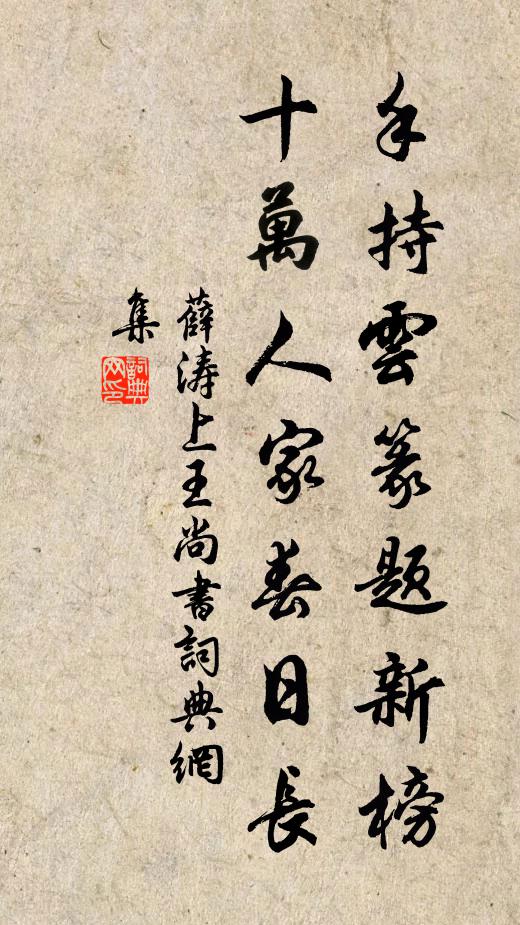 手持雲篆題新榜
十萬人家春日長
薛涛上王尚書詞典網
集
詞典
网印